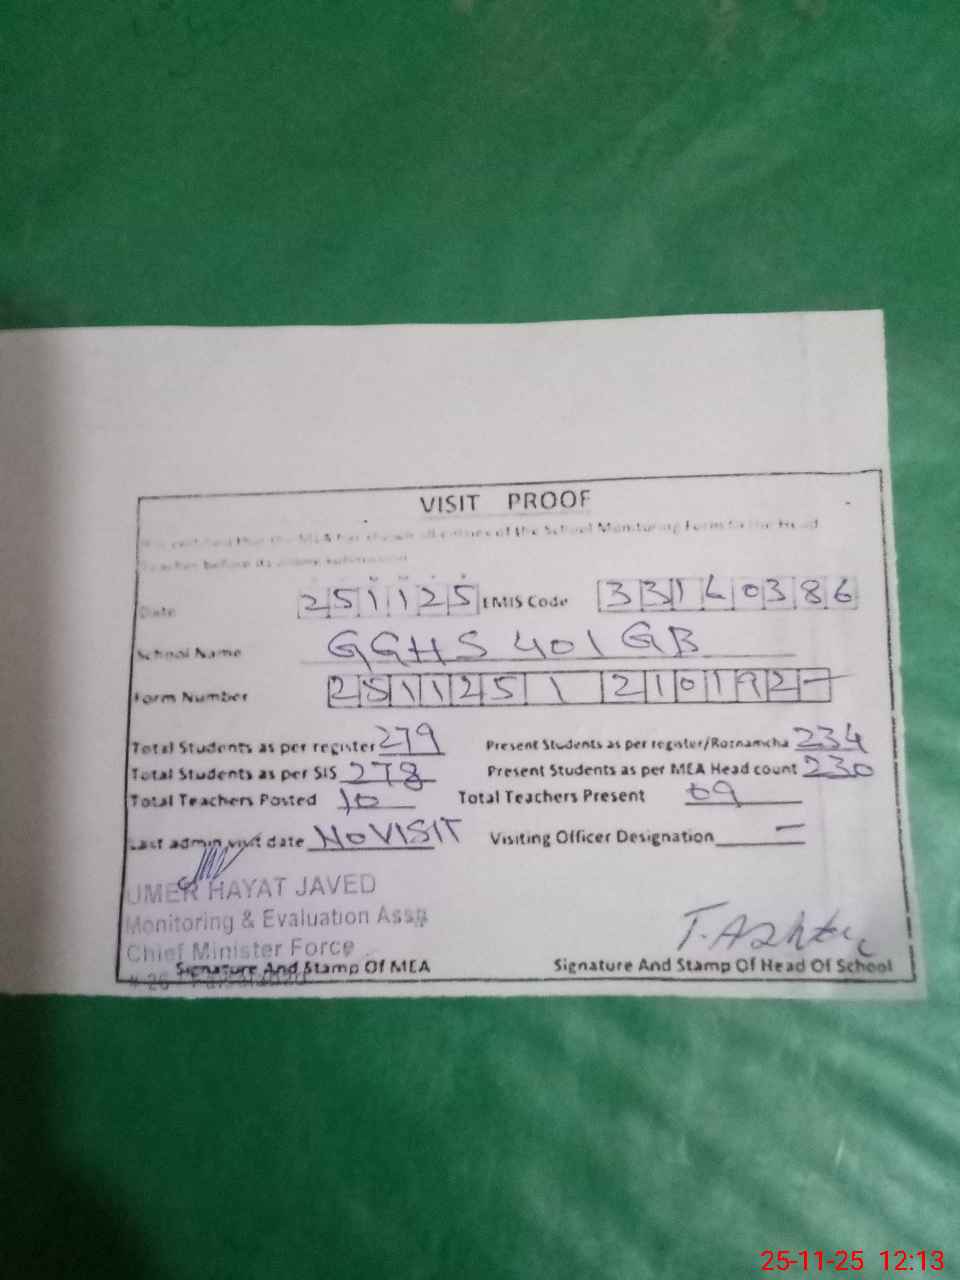 VISIT PROOF
It is certified that the MEA has shown all entries of the School Monitoring Form to the Head
Teacher before its online submission
Date 251125 EMIS Code 33140386
School Name GGHS 401 GB
Form Number 251125 1 210192-
Total Students as per register 279 Present Students as per register/Roznamcha 234
Total Students as per SIS 278 Present Students as per MEA Head count 230
Total Teachers Posted 10 Total Teachers Present 09
Last admin visit date NO VISIT Visiting Officer Designation -
UMER HAYAT JAVED
Monitoring & Evaluation Asst
Chief Minister Force
Signature And Stamp Of MEA Signature And Stamp Of Head Of School
25-11-25 12:13